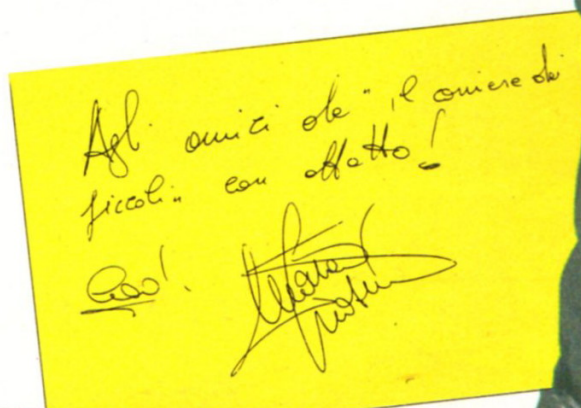 Agli amici de "il corriere dei
piccoli" con affetto!
Ciao!